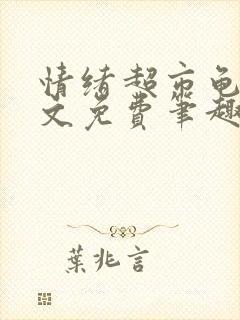 情绪超市龟
文免费笔趣
葉兆言